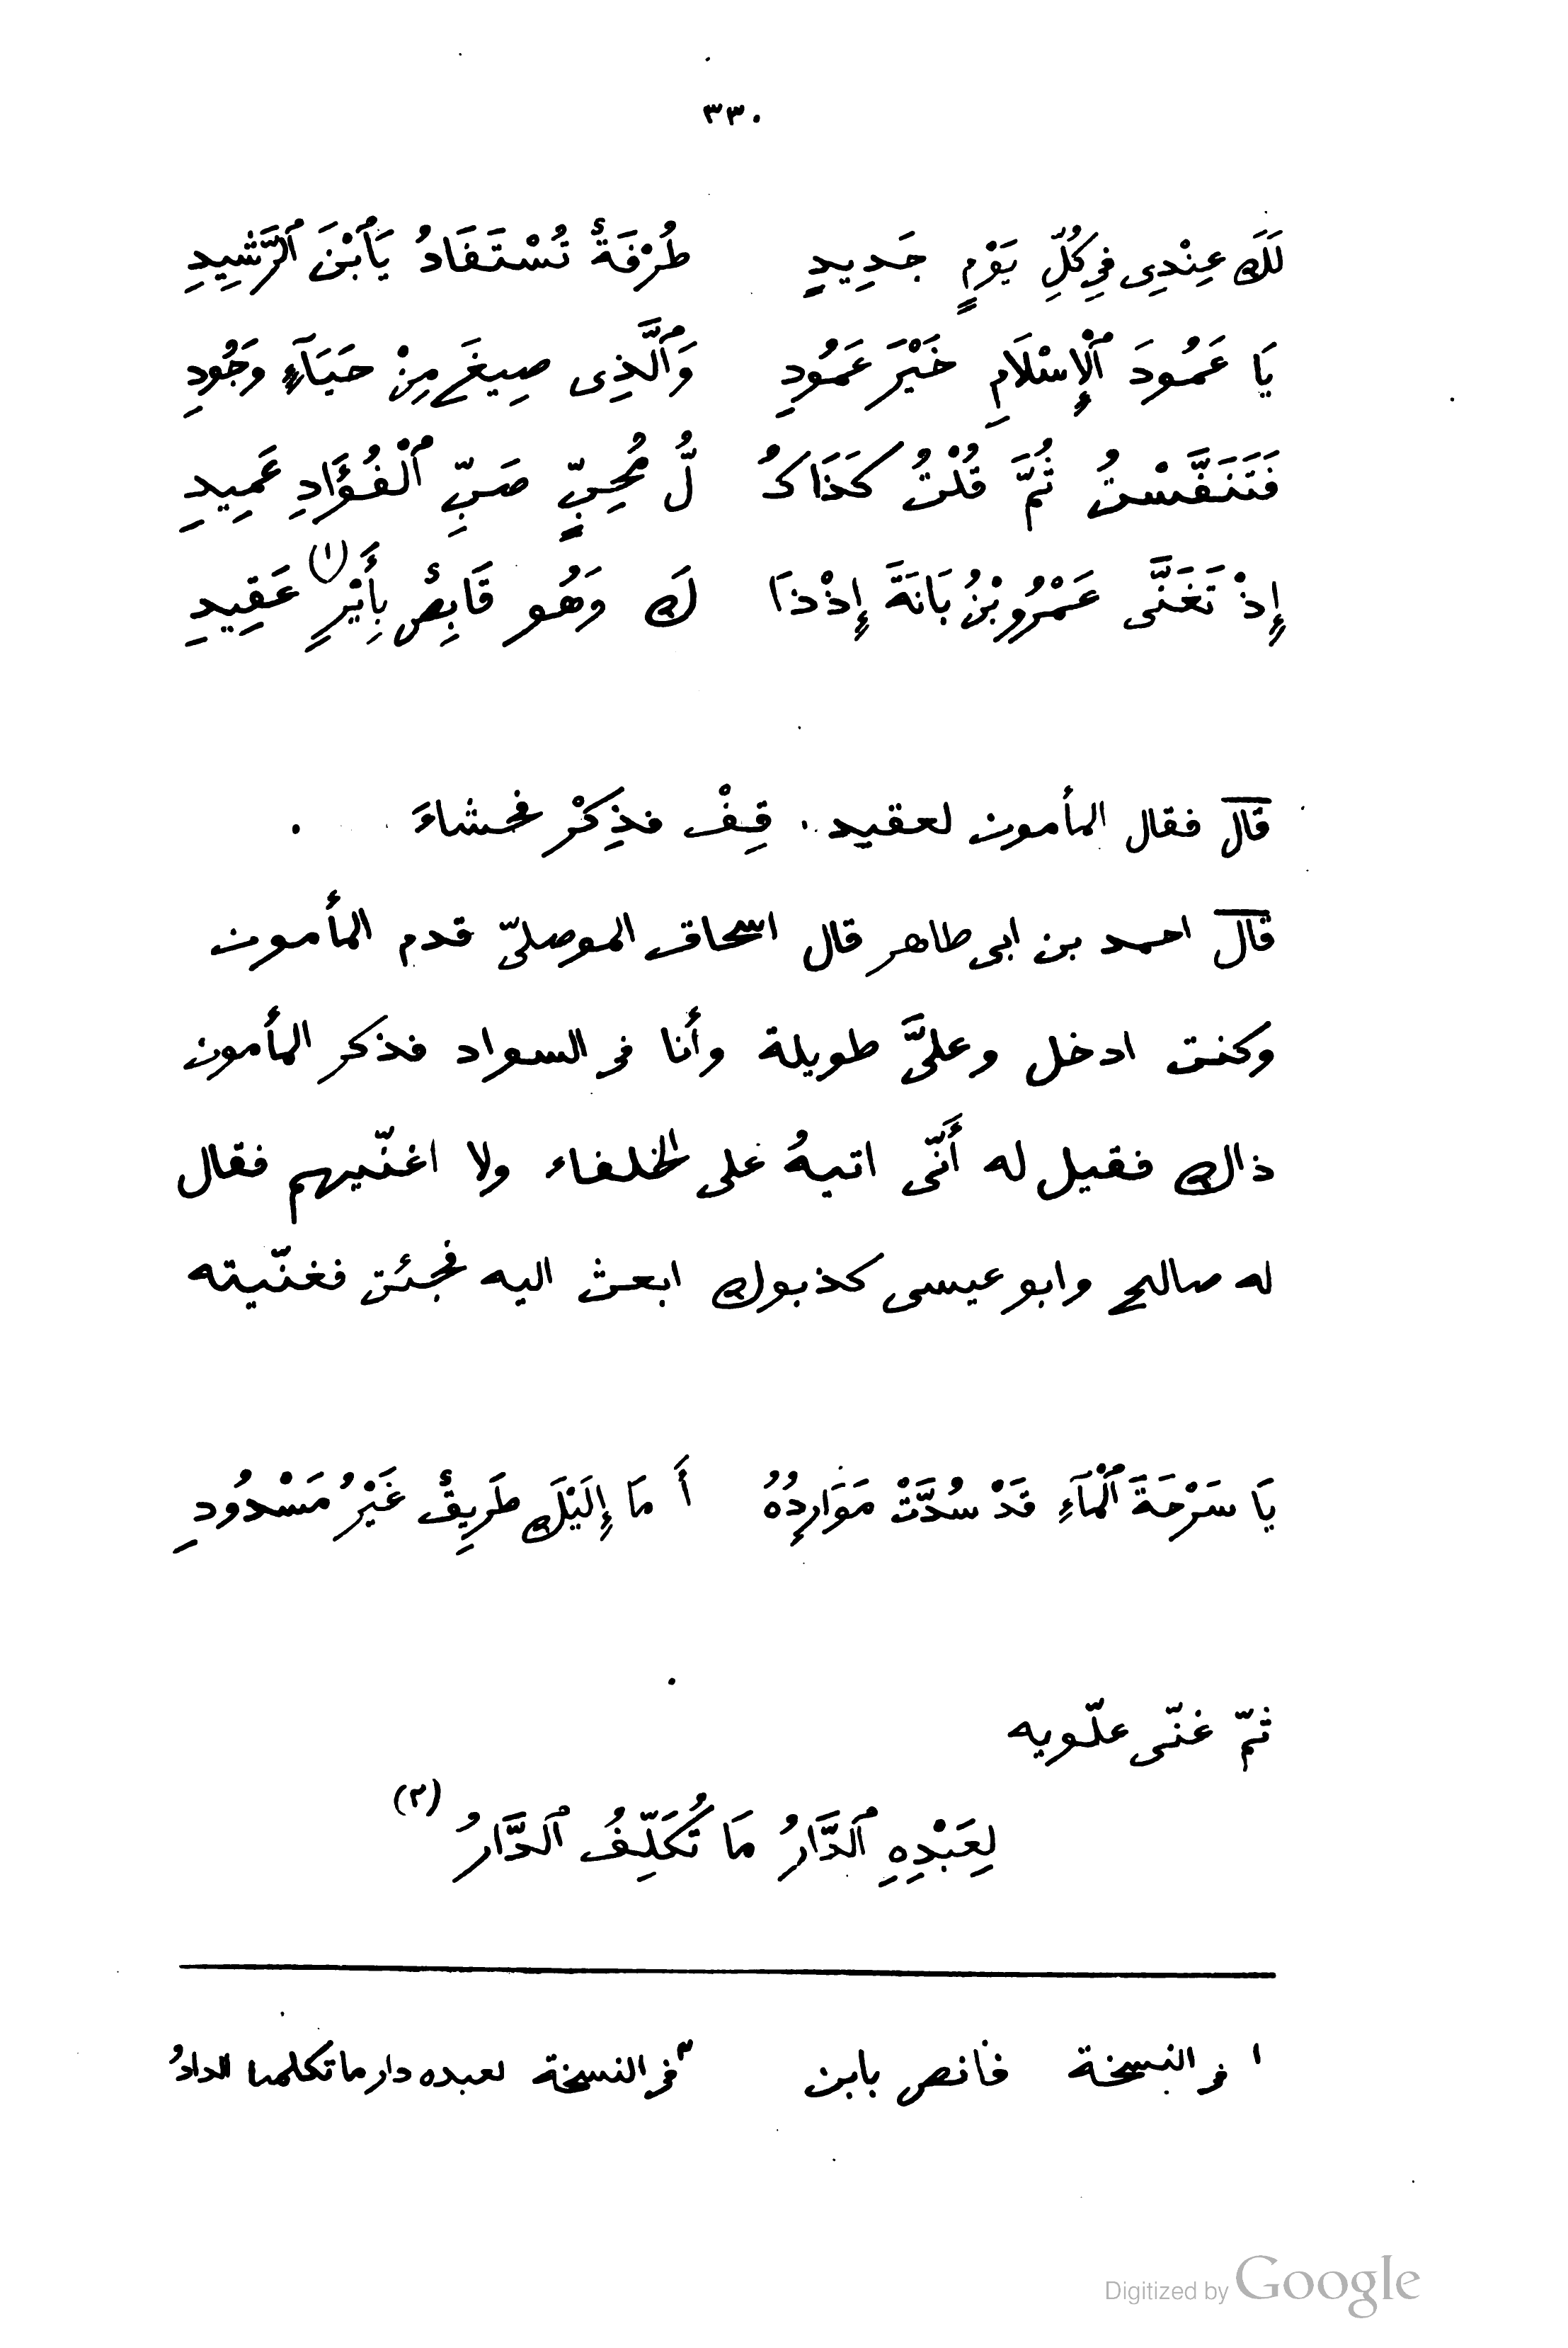 ٣٣٠
لَكَ عِنْدِى فِى كُلِّ يَوْمٍ جَدِيدٍ طُرْفَةٌ تُسْتَفَادُ يَا ٱبْنَ ٱلرَّشِيدِ
يَا عَمُودَ ٱلْإِسْلَامِ خَيْرَ عَمُودِ وَٱلَّذِى صِيغَ مِنْ حَيَآءٍ وَجُودِ
فَتَنَفَّسْتُ ثُمَّ قُلْتُ كَذَا كُ لُّ مُحِبٍّ صَبِّ ٱلْفُؤَادِ عَمِيدِ
إِذْ تَغَنَّى عَمْرُو بْنُ بَانَةَ إِذْ ذَا كَ وَهُو قَابِضٌ بِأَيْرِ (١) عَقِيدِ
قال فقال المأمون لعقيد قِفْ فذِكْر فحشاءَ
قال احمد بن ابى طاهر قال اسحاق الموصلىّ قدم المأمون
وكنت ادخل وعلىَّ طويلة وأنا فى السواد فذكر المأمون
ذاك فقيل له أَنّى اتيهُ على الخلفاء ولا اغنّيهم فقال
له صالح وابو عيسى كذبوك ابعث اليه فجئت فغنّيته
يَا سَرْحَةَ ٱلْمَآءِ قَدْ سُدَّتْ مَوَارِدُهُ أَ مَا إِلَيْكَ طَرِيقٌ غَيْرُ مَسْدُودِ
ثمّ غنّى علّويه
لِعَبْدِهِ ٱلدَّارُ مَا تُكَلِّفُ ٱلدَّارُ (٢)
١ فى النسخة قانص بابن ٢ فى النسخة لعبده دار ما تكلمنا الدارُ
Digitized by Google